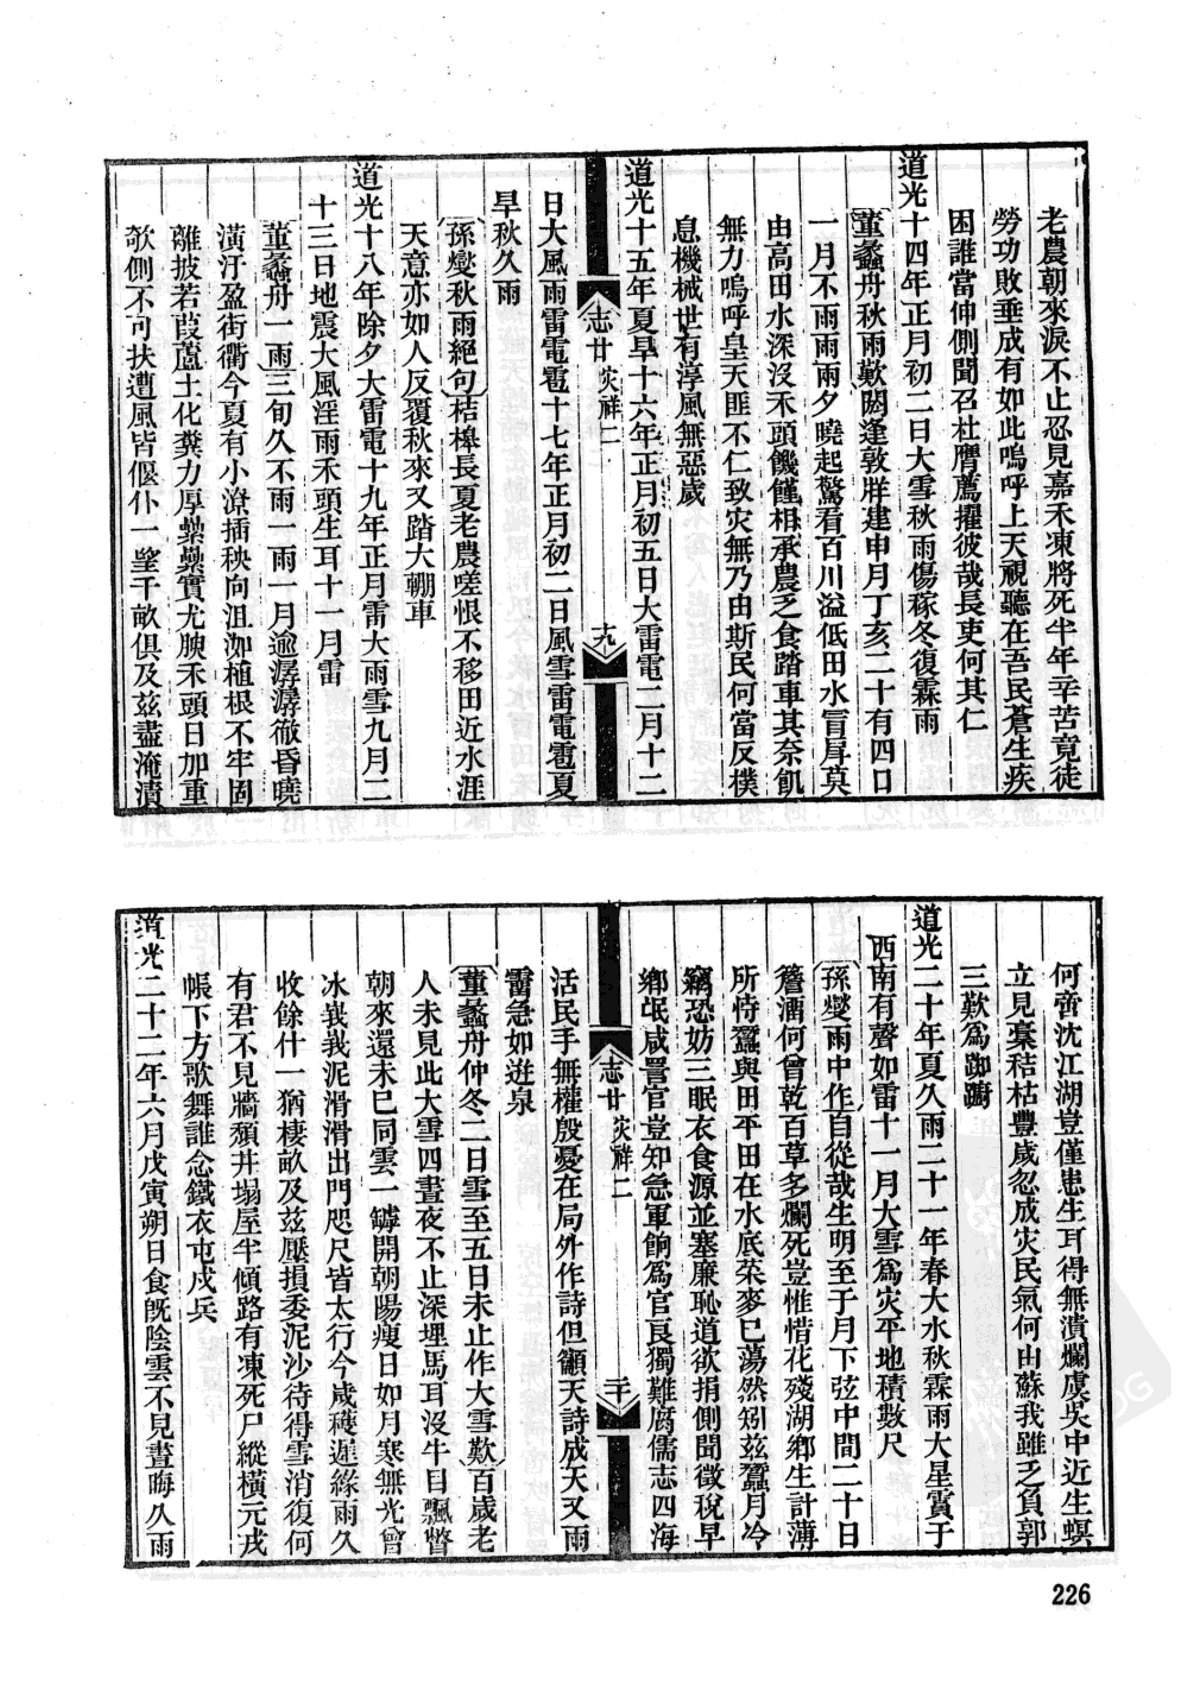 老農朝來淚不止忍見嘉禾凍將死半年辛苦竟徒
勞功敗垂成有如此嗚呼上天視聽在吾民蒼生疾
困誰當伸側聞召杜膺薦擢彼哉長吏何其仁
道光十四年正月初二日大雪秋雨傷稼冬復霖雨
董蠡舟秋雨歎閼逢敦牂建申月丁亥二十有四日
一月不雨雨兩夕曉起驚看百川溢低田水冒厚莫
由高田水深沒禾頭饑饉相承農乏食踏車其奈飢
無力嗚呼皇天匪不仁致灾無乃由斯民何當反樸
息機械世有淳風無惡歲
道光十五年夏旱十六年正月初五日大雷電二月十二
志廿 灾祥二 十九
日大風雨雷電雹十七年正月初二日風雪雷電雹夏
旱秋久雨
孫燮秋雨絕句桔槹長夏老農嗟恨不移田近水涯
天意亦如人反覆秋來又踏大棚車
道光十八年除夕大雷電十九年正月雷大雨雪九月二
十三日地震大風淫雨禾頭生耳十一月雷
董蠡舟一雨三旬久不雨一雨一月逾潺潺徹昏曉
潢汙盈街衢今夏有小潦插秧向沮洳植根不牢固
離披若葭蘆土化糞力厚纍纍實尤腴禾頭日加重
欹側不可扶遭風皆偃仆一壟千畝俱及茲盡淹漬
何啻沈江湖豈僅患生耳得無潰爛虞吳中近生螟
立見藁秸枯豐歲忽成灾民氣何由蘇我雖乏負郭
三歎為踟躕
道光二十年夏久雨二十一年春大水秋霖雨大星霣于
西南有聲如雷十一月大雪為灾平地積數尺
孫燮雨中作自從哉生明至于月下弦中間二十日
簷溜何曾乾百草多爛死豈惟惜花殘湖鄉生計薄
所恃蠶與田平田在水底菜麥已蕩然矧茲蠶月冷
竊恐妨三眠衣食源並塞廉恥道欲捐側聞徵稅早
鄉氓咸詈官豈知急軍餉為官良獨難腐儒志四海
志廿 灾祥二 二十
活民手無權殷憂在局外作詩但籲天詩成天又雨
霤急如迸泉
董蠡舟仲冬二日雪至五日未止作大雪歎百歲老
人未見此大雪四晝夜不止深埋馬耳沒牛目飄瞥
朝來還未已同雲一罅開朝陽瘦日如月寒無光曾
冰峩峩泥滑滑出門咫尺皆太行今歲穫遲緣雨久
收餘什一猶棲畝及茲壓損委泥沙待得雪消復何
有君不見牆頹井塌屋半傾路有凍死尸縱橫元戎
帳下方歌舞誰念鐵衣屯戍兵
道光二十二年六月戊寅朔日食旣陰雲不見晝晦久雨
226